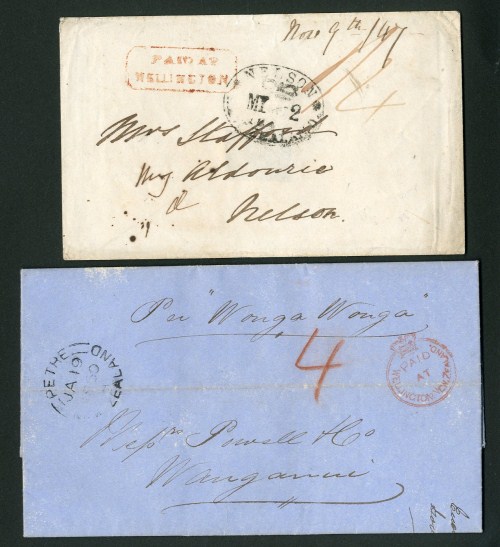 Nov 9th /47
PAID AT
WELLINGTON
NELSON
MY 2
ZEALAND
4
Mrs Stafford
Nelson.
Per "Wonga Wonga"
PETRE
JA 19
ZEALAND
4
PAID
AT
WELLINGTON NEW ZEALAND
Messrs Powell & Co
Wanganui